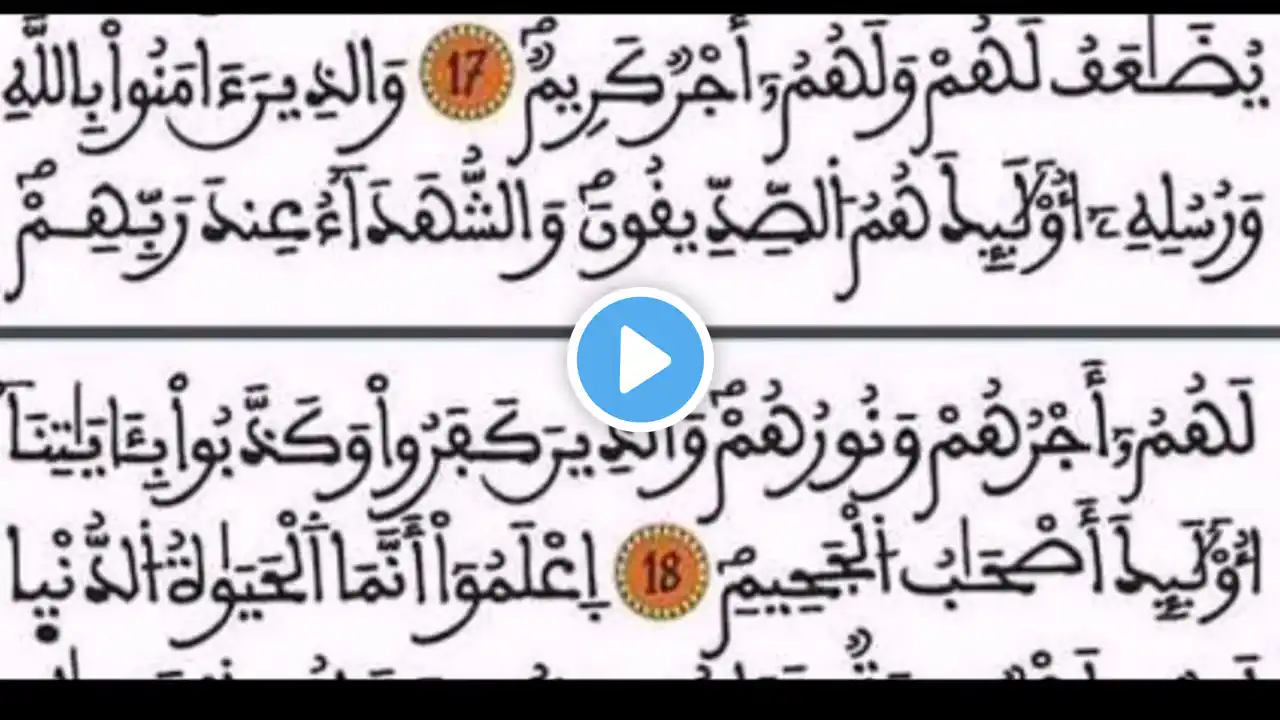 يُضَٰعَفُ لَهُمْ وَلَهُمُۥٓ أَجْرٞ كَرِيمٞۖ 17 وَالذِينَ ءَامَنُواْ بِاللَّهِ
وَرُسُلِهِۦٓ أُوْلَٰٓئِكَ هُمُ اُلصِّدِّيقُونَۖ وَالشُّهَدَآءُ عِندَ رَبِّهِمْۖ
لَهُمُۥٓ أَجْرُهُمْ وَنُورُهُمْۖ وَالذِينَ كَفَرُواْ وَكَذَّبُواْ بِـَٔايَٰتِنَآ
أُوْلَٰٓئِكَ أَصْحَٰبُ اُلْجَحِيمِۖ 18 اِعْلَمُوٓاْ أَنَّمَا اَلْحَيَوٰةُ اُلدُّنْيٜا